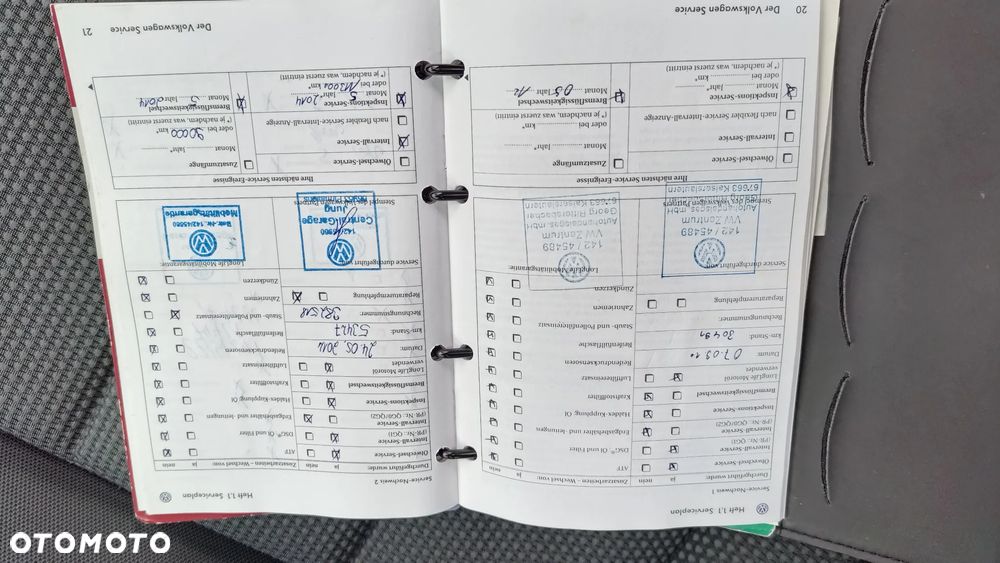 Heft 1.1 Serviceplan
Service-Nachweis 1
Durchgeführt wurde:
ja
nein
Ölwechsel-Service
Intervall-Service
(PR-Nr. QG1)
Inspektions-Service
(PR-Nr. QG0/QG2)
Bremsflüssigkeitwechsel
LongLife Motoröl
verwendet
Datum:
07.05.10
km-Stand:
30491
Rechnungsnummer:
Reparaturempfehlung
Zusatzarbeiten - Wechsel von:
ja
nein
ATF
DSG® Öl und Filter
Erdgasbehälter und -leitungen
Haldex-Kupplung Öl
Kraftstofffilter
Luftfiltereinsatz
Reifendrucksensoren
Reifenfüllflasche
Staub- und Pollenfiltereinsatz
Zahnriemen
Zündkerzen
Service durchgeführt von
LongLife Mobilitätsgarantie:
142 / 45489
VW Zentrum
Autohandelsges. mbH
67663 Kaiserslautern
142 / 45489
VW Zentrum
Autohandelsges. mbH
Georg Rittersbacher
67663 Kaiserslautern
Ihre nächsten Service-Ereignisse
Ölwechsel-Service
Intervall-Service
nach flexibler Service-Intervall-Anzeige
Inspektions-Service
Monat
Jahr*
oder bei
km*
(*je nachdem, was zuerst eintritt)
Zusatzumfänge
Monat
Jahr*
oder bei
km*
(*je nachdem, was zuerst eintritt)
Bremsflüssigkeitwechsel
Monat 05 Jahr 12
20
Der Volkswagen Service
Heft 1.1 Serviceplan
Service-Nachweis 2
Durchgeführt wurde:
ja
nein
Ölwechsel-Service
Intervall-Service
(PR-Nr. QG1)
Inspektions-Service
(PR-Nr. QG0/QG2)
Bremsflüssigkeitwechsel
LongLife Motoröl
verwendet
Datum:
24.05.2012
km-Stand:
53427
Rechnungsnummer:
Reparaturempfehlung
Zusatzarbeiten - Wechsel von:
ja
nein
ATF
DSG® Öl und Filter
Erdgasbehälter und -leitungen
Haldex-Kupplung Öl
Kraftstofffilter
Luftfiltereinsatz
Reifendrucksensoren
Reifenfüllflasche
Staub- und Pollenfiltereinsatz
Zahnriemen
Zündkerzen
Service durchgeführt von:
LongLife Mobilitätsgarantie:
Central-Garage
Jung
Betr.-Nr. 142/45560
Mobilitätsgarantie
Ihre nächsten Service-Ereignisse
Ölwechsel-Service
Intervall-Service
nach flexibler Service-Intervall-Anzeige
Inspektions-Service
Monat 5 Jahr* 2014
oder bei
km*
(*je nachdem, was zuerst eintritt)
Zusatzumfänge
Monat
Jahr*
oder bei 90000 km*
(*je nachdem, was zuerst eintritt)
Bremsflüssigkeitwechsel
Monat 5 Jahr 2014
Der Volkswagen Service
21
OTOMOTO